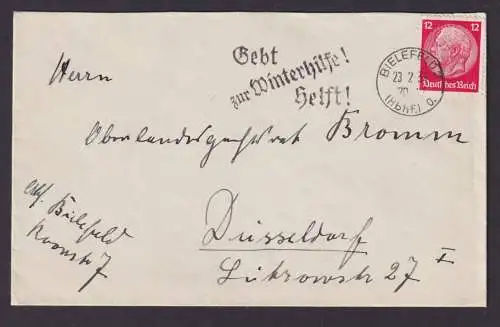 12 12
Deutsches Reich
BIELEFELD
23. 2.
20
(Hbhf.) o.
Gebt
zur Winterhilfe!
Helft!
Herrn
Oberlandesgerichtsrat Bromm
Düsseldorf
Lützowstr 27 I
Abs. Bielefeld
Roonstr 7